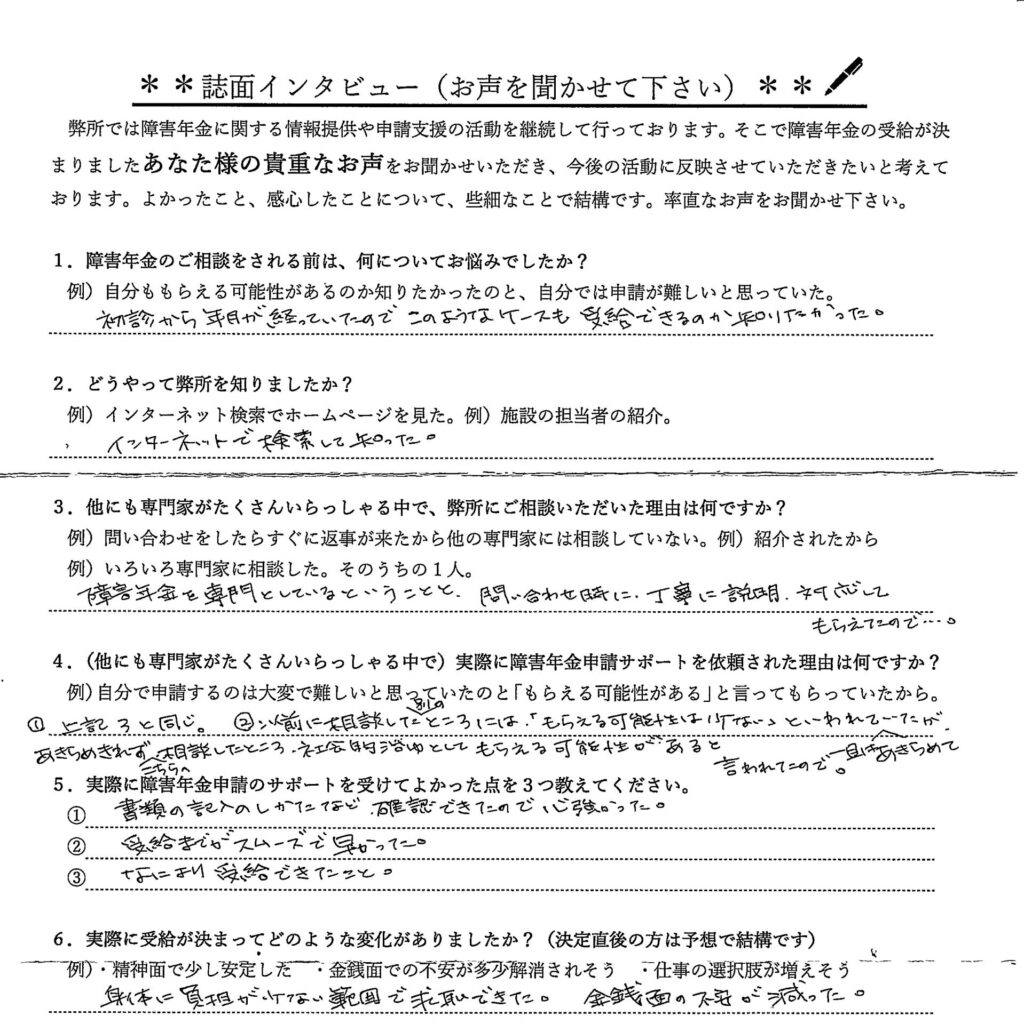 ＊＊誌面インタビュー（お声を聞かせて下さい）＊＊
弊所では障害年金に関する情報提供や申請支援の活動を継続して行っております。そこで障害年金の受給が決
まりましたあなた様の貴重なお声をお聞かせいただき、今後の活動に反映させていただきたいと考えて
おります。よかったこと、感心したことについて、些細なことで結構です。率直なお声をお聞かせ下さい。
1．障害年金のご相談をされる前は、何についてお悩みでしたか？
例）自分ももらえる可能性があるのか知りたかったのと、自分では申請が難しいと思っていた。
初診から年月が経っていたのでこのようなケースも受給できるのか知りたかった。
2．どうやって弊所を知りましたか？
例）インターネット検索でホームページを見た。例）施設の担当者の紹介。
インターネットで検索して知った。
3．他にも専門家がたくさんいらっしゃる中で、弊所にご相談いただいた理由は何ですか？
例）問い合わせをしたらすぐに返事が来たから他の専門家には相談していない。例）紹介されたから
例）いろいろ専門家に相談した。そのうちの1人。
障害年金を専門としているということと、問い合わせ時に、丁寧に説明、対応して
もらえたので…。
4．（他にも専門家がたくさんいらっしゃる中で）実際に障害年金申請サポートを依頼された理由は何ですか？
例）自分で申請するのは大変で難しいと思っていたのと「もらえる可能性がある」と言ってもらっていたから。
① 上記3と同じ。 ②以前に相談した別のところには、「もらえる可能性は少ない」といわれていたが、
一旦はあきらめて
あきらめきれず こちらへ相談したところ、社会的治ゆとしてもらえる可能性があると
言われたので。
5．実際に障害年金申請のサポートを受けてよかった点を3つ教えてください。
① 書類の記入のしかたなど、確認できたので心強かった。
② 受給までがスムーズで早かった。
③ なにより受給できたこと。
6．実際に受給が決まってどのような変化がありましたか？（決定直後の方は予想で結構です）
例）・精神面で少し安定した ・金銭面での不安が多少解消されそう ・仕事の選択肢が増えそう
身体に負担が少ない範囲で求職できた。 金銭面の不安が減った。